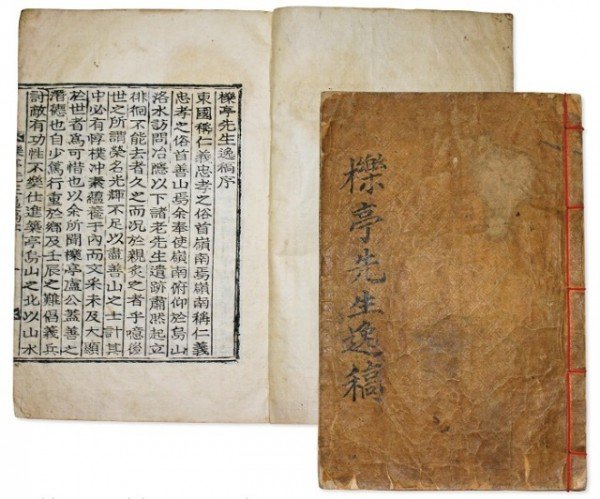 櫟亭先生逸稿序
東國稱仁義忠孝之俗首嶺南焉嶺南稱仁義
忠孝之俗首善山焉余奉使嶺南俯仰於烏山
洛水訪問冶隱以下諸老先生遺跡肅然起立
徘徊不能去者久之而況於親炙之者乎噫後
世之所謂榮名光輝不足以盡善山之士計其
中必有惇樸冲素蘊襲于內而文采未及大顯
於世者爲可惜也以余所聞櫟亭盧公蓋善之
潛德也自少篤行重於鄉及壬辰之難倡義兵
討敵有功性不樂仕進築亭烏山之北以山水
櫟亭先生逸稿